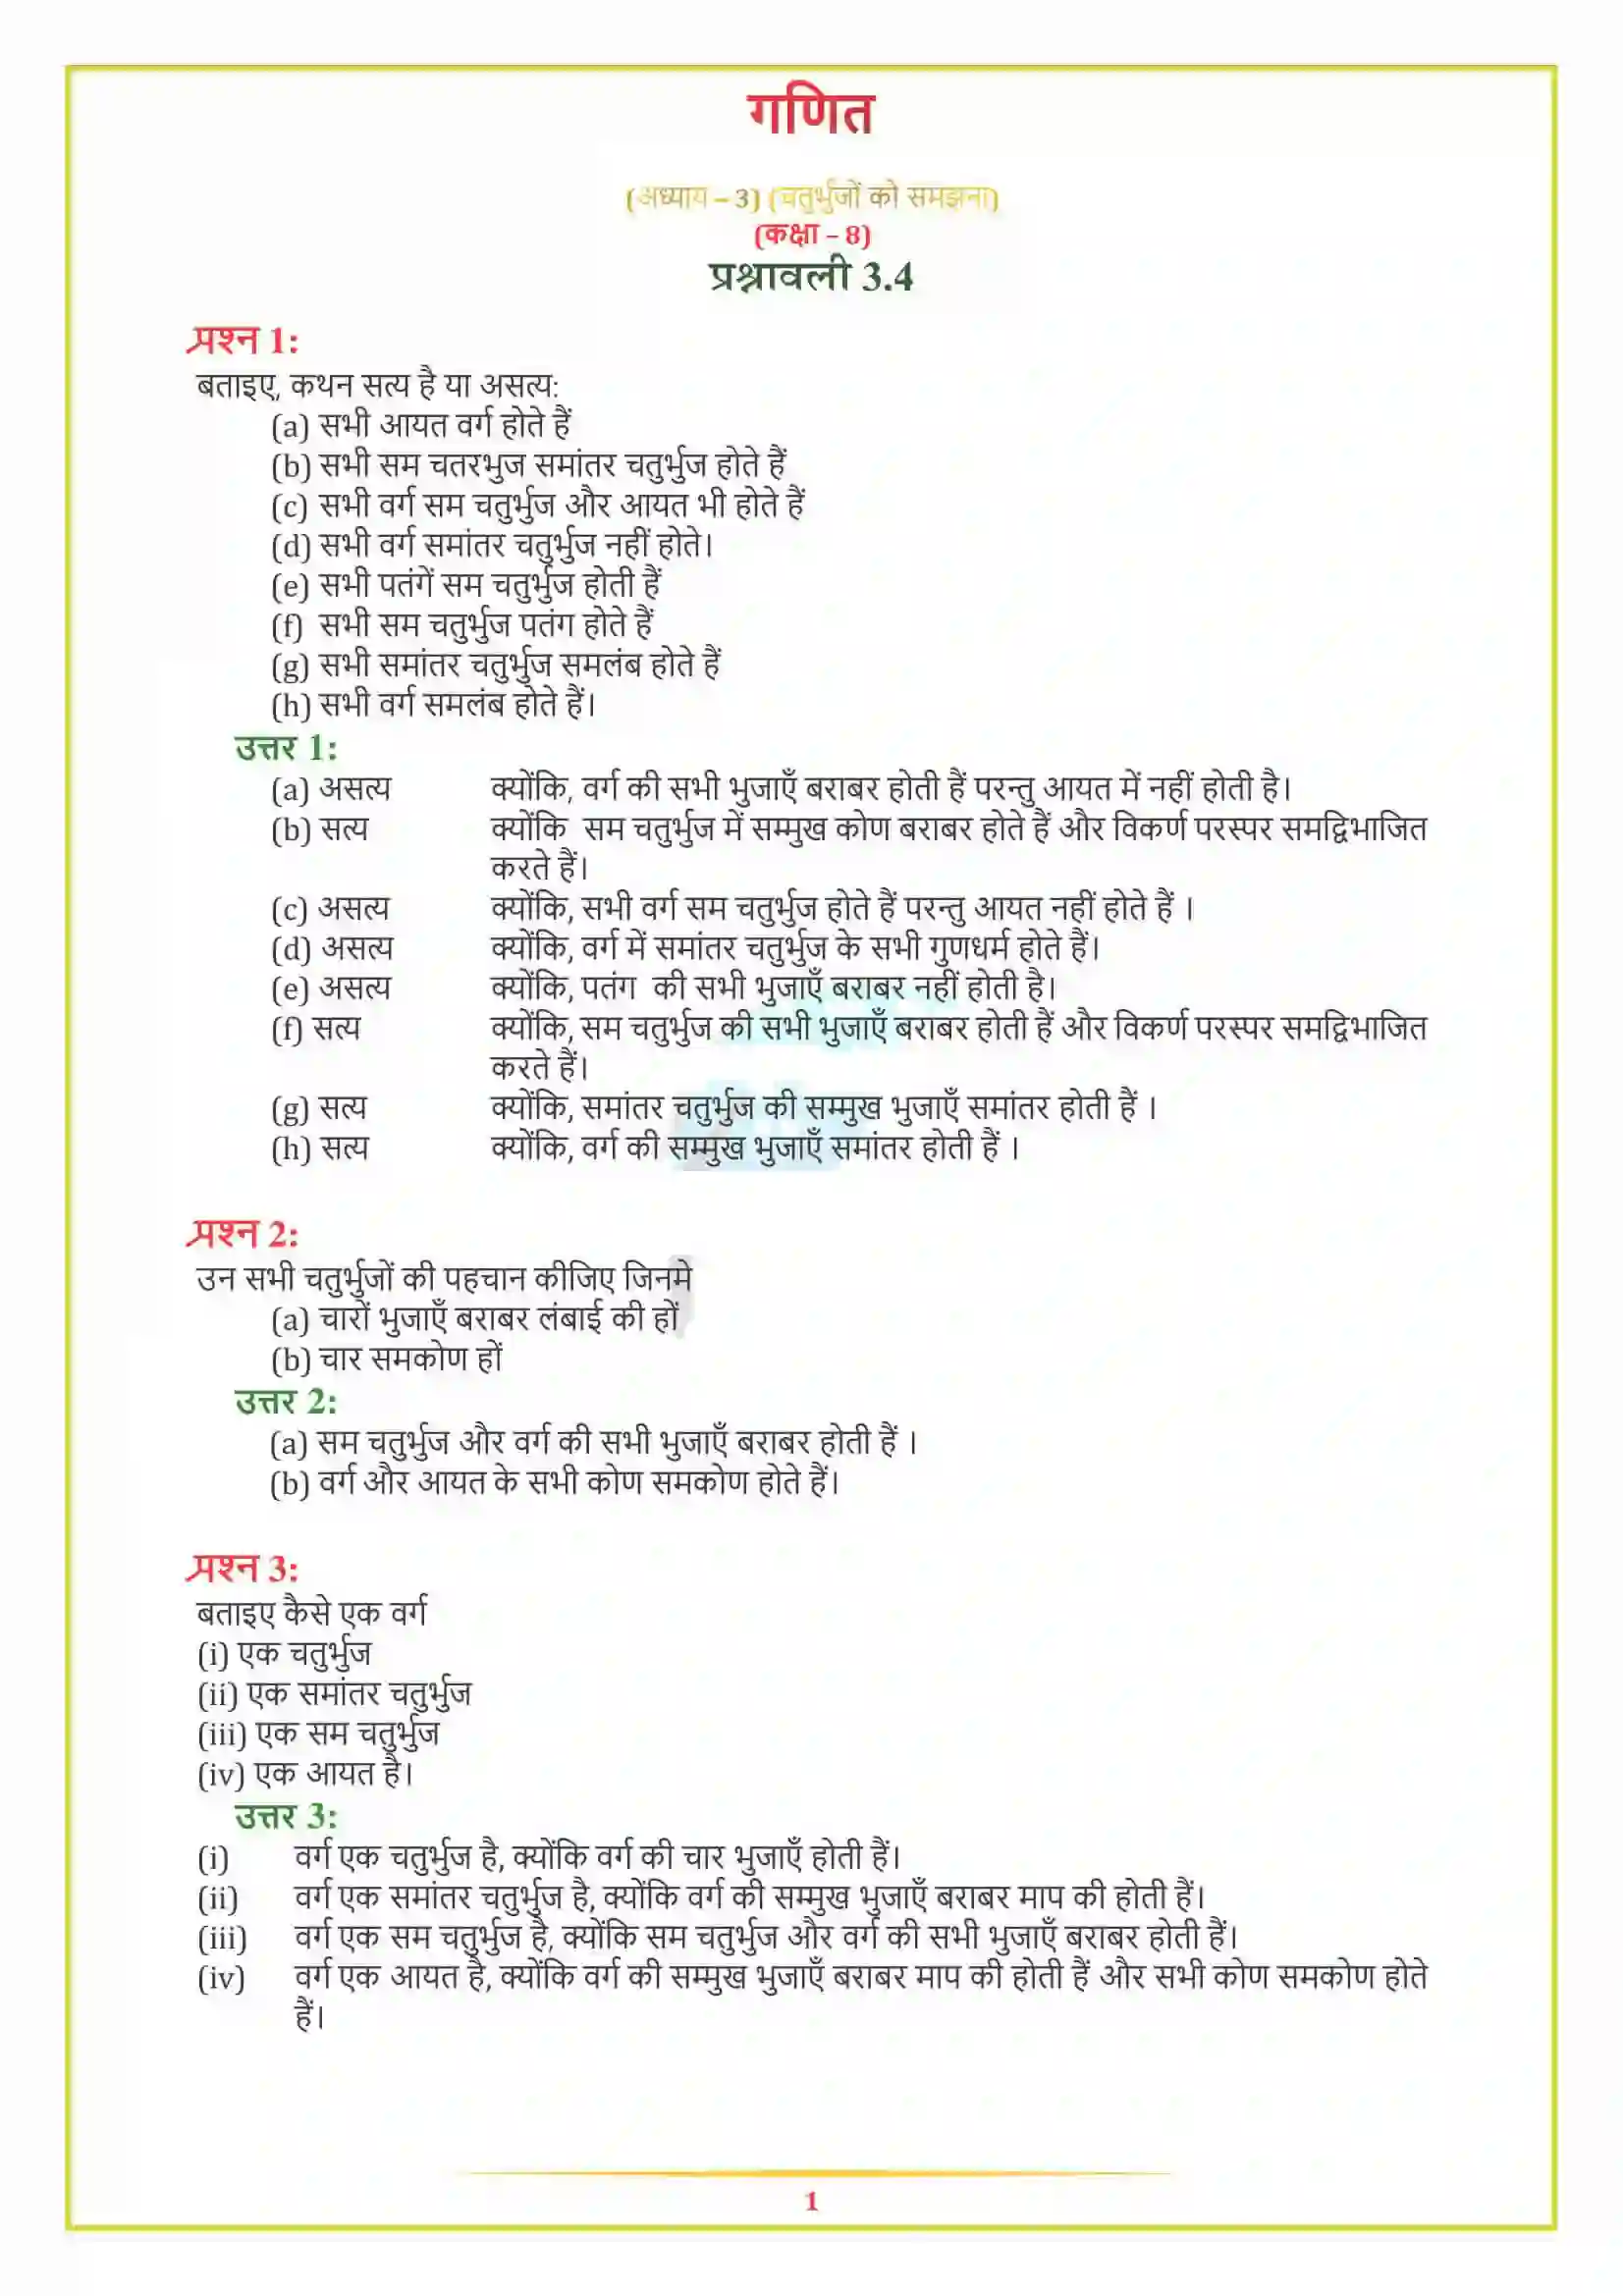 गणित
(अध्याय – 3) (चतुर्भुजों को समझना)
(कक्षा – 8)
प्रश्नावली 3.4
प्रश्न 1:
बताइए, कथन सत्य है या असत्य:
(a) सभी आयत वर्ग होते हैं
(b) सभी सम चतरभुज समांतर चतुर्भुज होते हैं
(c) सभी वर्ग सम चतुर्भुज और आयत भी होते हैं
(d) सभी वर्ग समांतर चतुर्भुज नहीं होते।
(e) सभी पतंगें सम चतुर्भुज होती हैं
(f) सभी सम चतुर्भुज पतंग होते हैं
(g) सभी समांतर चतुर्भुज समलंब होते हैं
(h) सभी वर्ग समलंब होते हैं।
उत्तर 1:
(a) असत्य क्योंकि, वर्ग की सभी भुजाएँ बराबर होती हैं परन्तु आयत में नहीं होती है।
(b) सत्य क्योंकि सम चतुर्भुज में सम्मुख कोण बराबर होते हैं और विकर्ण परस्पर समद्विभाजित
करते हैं।
(c) असत्य क्योंकि, सभी वर्ग सम चतुर्भुज होते हैं परन्तु आयत नहीं होते हैं ।
(d) असत्य क्योंकि, वर्ग में समांतर चतुर्भुज के सभी गुणधर्म होते हैं।
(e) असत्य क्योंकि, पतंग की सभी भुजाएँ बराबर नहीं होती है।
(f) सत्य क्योंकि, सम चतुर्भुज की सभी भुजाएँ बराबर होती हैं और विकर्ण परस्पर समद्विभाजित
करते हैं।
(g) सत्य क्योंकि, समांतर चतुर्भुज की सम्मुख भुजाएँ समांतर होती हैं ।
(h) सत्य क्योंकि, वर्ग की सम्मुख भुजाएँ समांतर होती हैं ।
प्रश्न 2:
उन सभी चतुर्भुजों की पहचान कीजिए जिनमे
(a) चारों भुजाएँ बराबर लंबाई की हों
(b) चार समकोण हों
उत्तर 2:
(a) सम चतुर्भुज और वर्ग की सभी भुजाएँ बराबर होती हैं ।
(b) वर्ग और आयत के सभी कोण समकोण होते हैं।
प्रश्न 3:
बताइए कैसे एक वर्ग
(i) एक चतुर्भुज
(ii) एक समांतर चतुर्भुज
(iii) एक सम चतुर्भुज
(iv) एक आयत है।
उत्तर 3:
(i) वर्ग एक चतुर्भुज है, क्योंकि वर्ग की चार भुजाएँ होती हैं।
(ii) वर्ग एक समांतर चतुर्भुज है, क्योंकि वर्ग की सम्मुख भुजाएँ बराबर माप की होती हैं।
(iii) वर्ग एक सम चतुर्भुज है, क्योंकि सम चतुर्भुज और वर्ग की सभी भुजाएँ बराबर होती हैं।
(iv) वर्ग एक आयत है, क्योंकि वर्ग की सम्मुख भुजाएँ बराबर माप की होती हैं और सभी कोण समकोण होते
हैं।
1